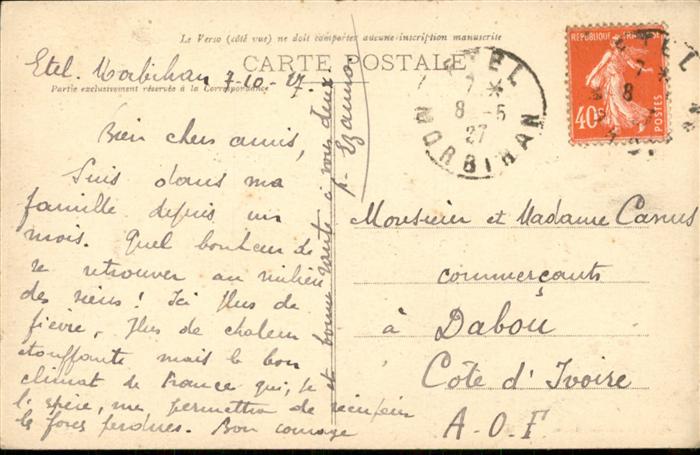 Le Verso (côté vue) ne doit comporter aucune inscription manuscrite
CARTE POSTALE
Partie exclusivement réservée à la Correspondance
Etel. Morbihan 7-10-27.
Bien chers amis,
Suis dans ma
famille depuis un
mois. Quel bonheur de
se retrouver au milieu
des siens! Ici plus de
fièvre, plus de chaleur
étouffante mais le bon
climat de France qui, je
l'espère, me permettra de
les forces perdues. Bon courage
et bonne santé à vous deux
ETEL
7 *
8 -
27
MORBIHAN
REPUBLIQUE FRANÇAISE
POSTES
40c
ETEL
7 *
8
Monsieur et Madame Camus
commerçants
à Dabou
Côte d'Ivoire
A.O.F